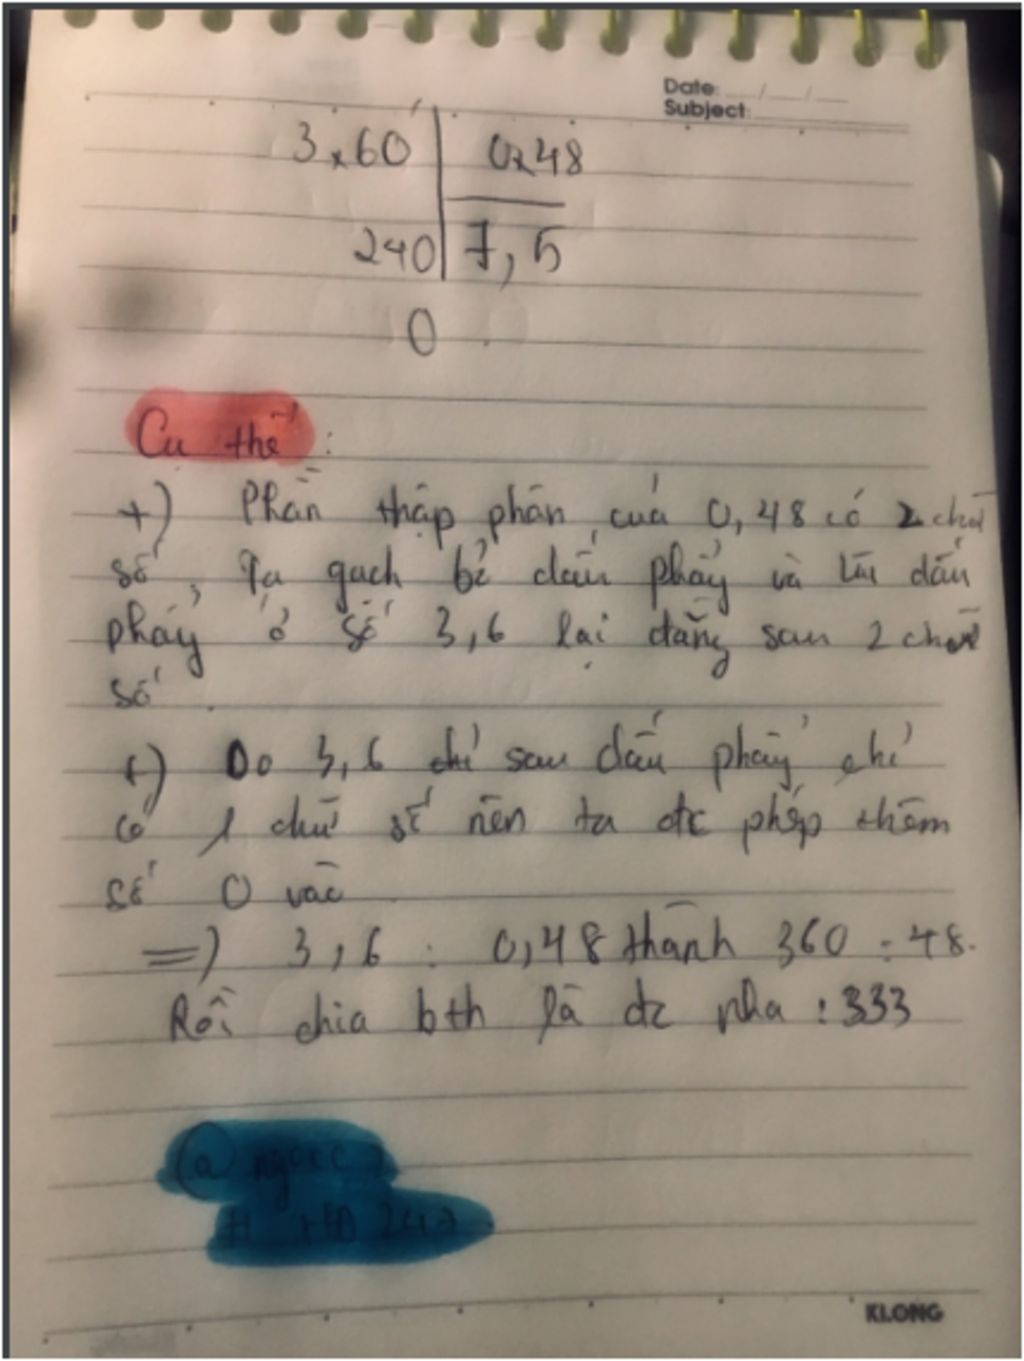 Date: __/__/__
Subject:
3,60 0,48
240 7,5
0
Cụ thể :
+) Phần thập phân của 0,48 có 2 chữ
số, Ta gạch bỏ dấu phẩy và lùi dấu
phẩy ở số 3,6 lại đằng sau 2 chữ
số.
+) Do 3,6 sau dấu phẩy chỉ
có 1 chữ số nên ta đc phép thêm
số 0 vào
=) 3,6 : 0,48 thành 360 : 48.
Rồi chia bth là đc nha :333
KLONG